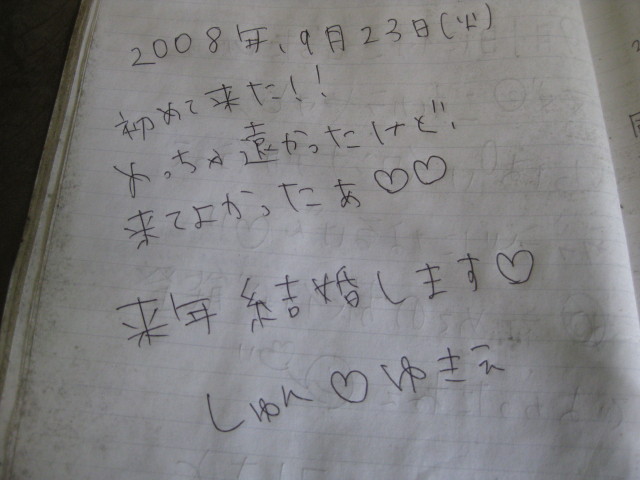 2008年、9月23日(火)
初めて来た!!
めっちゃ遠かったけど、
来てよかったぁ♡♡
来年 結婚します♡
しゅん♡ゆきえ